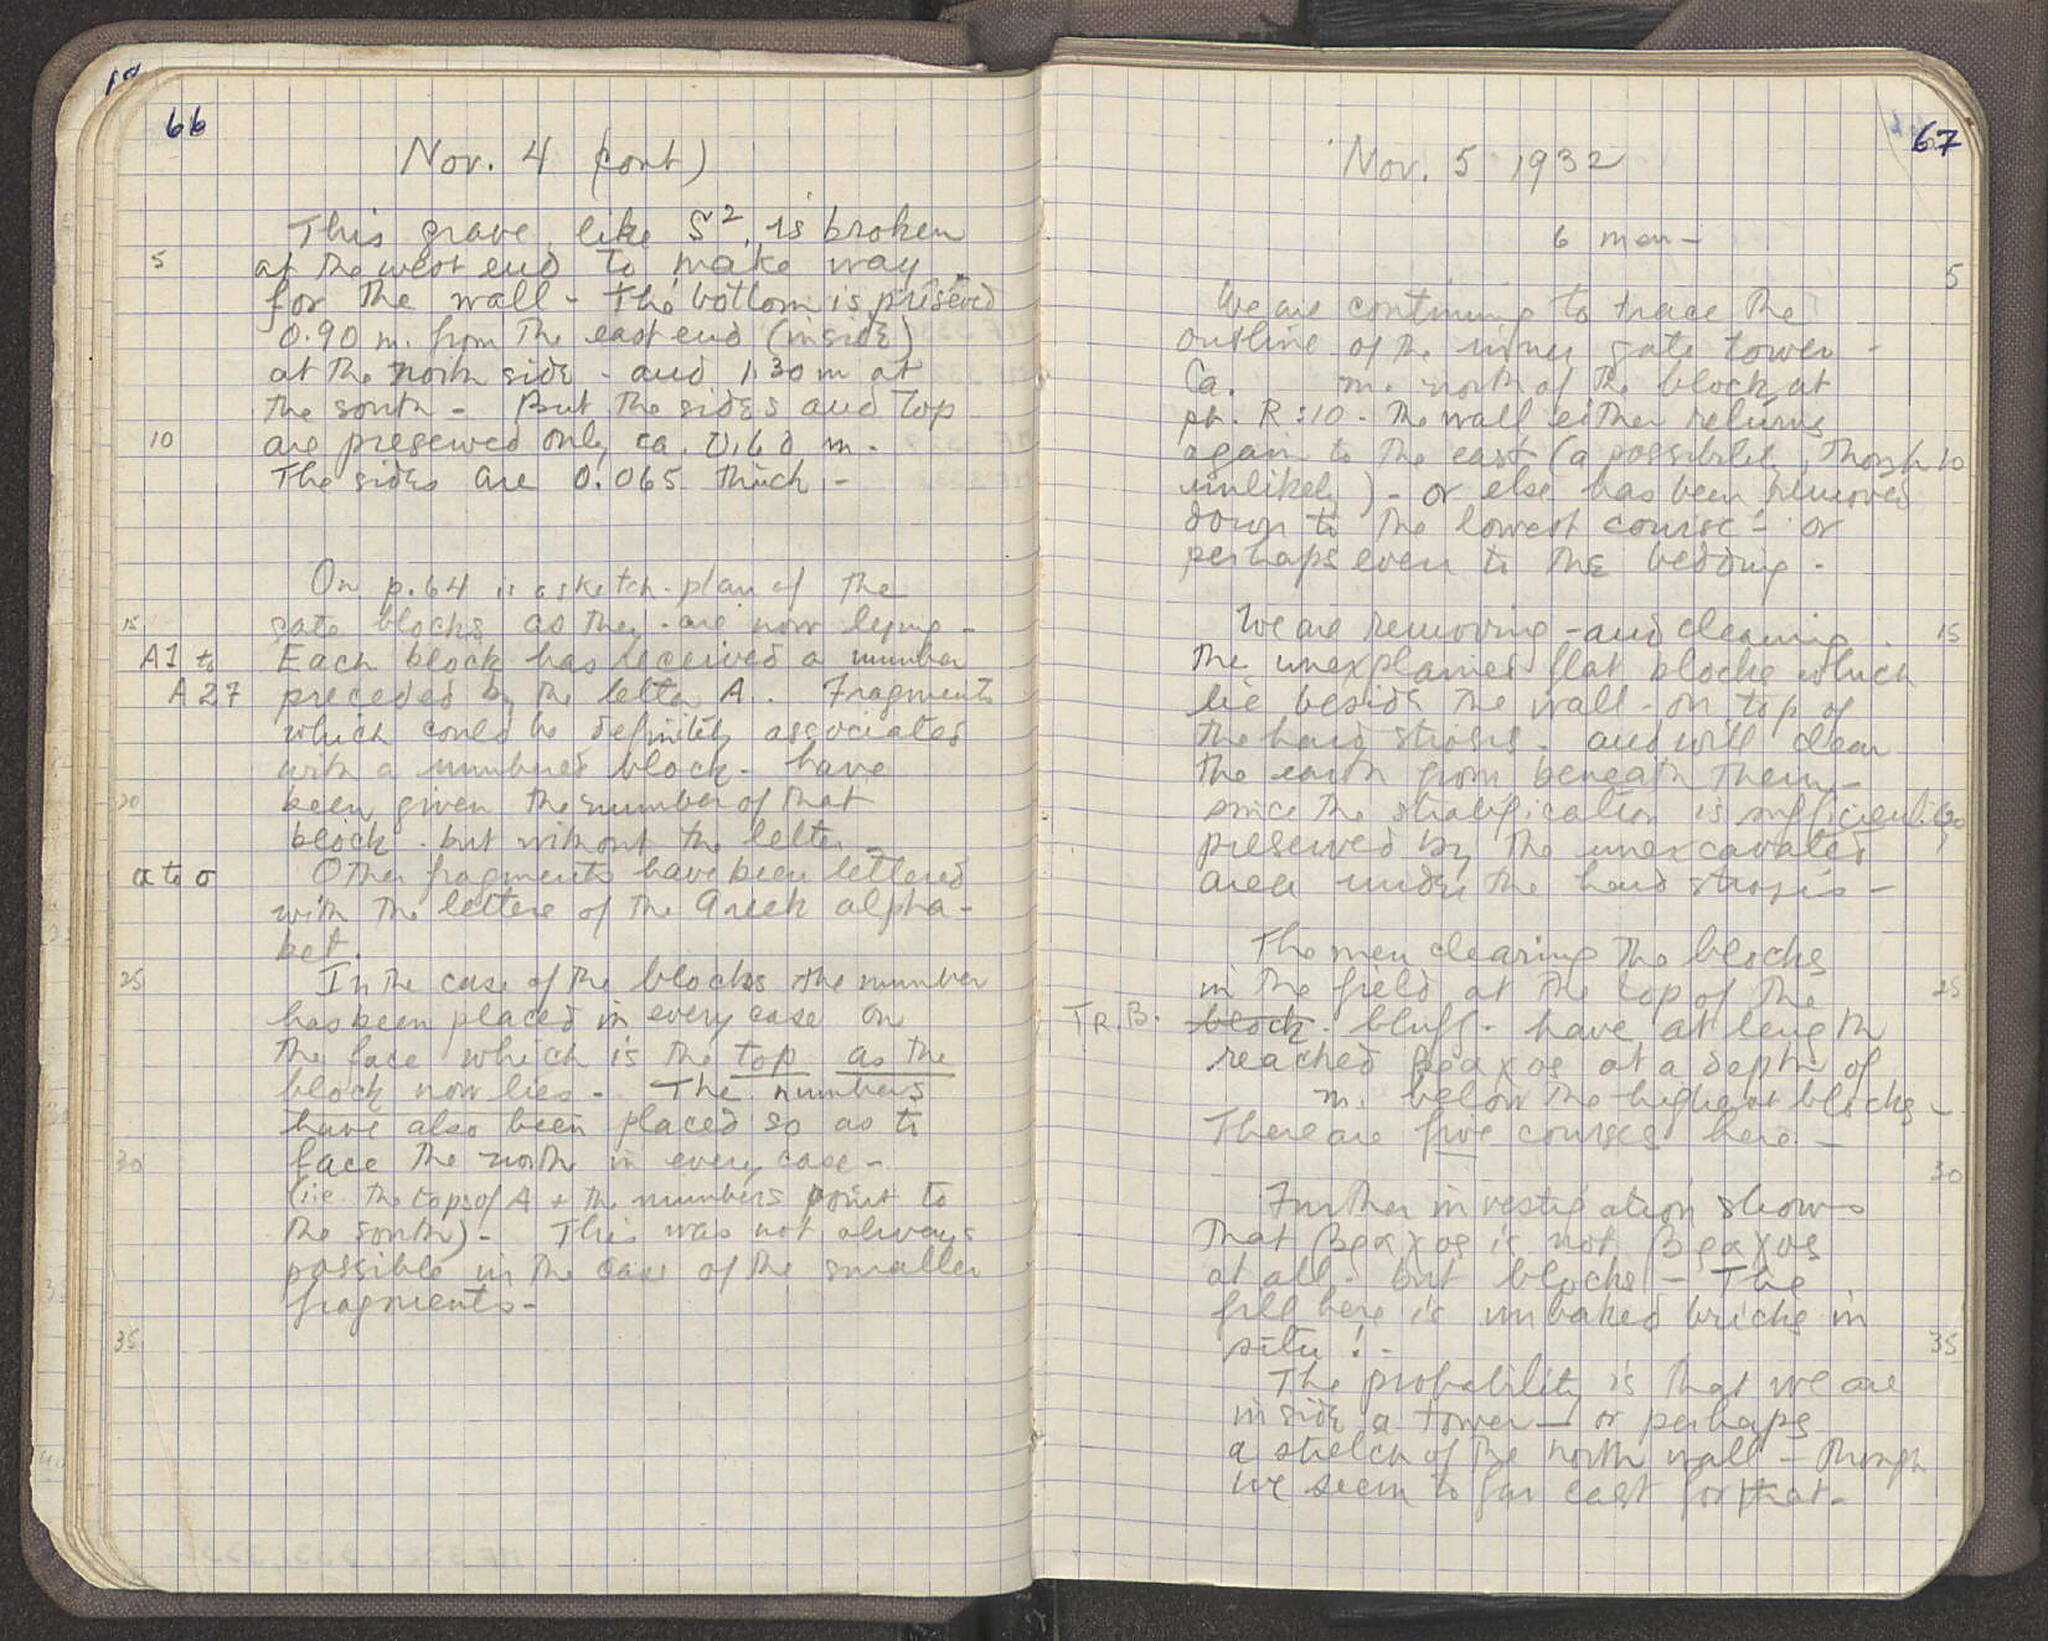 66
Nov. 4 (cont)
This grave, like S², is broken
5 at the west end to make way
for the wall - The bottom is preserved
0.90 m. from the east end (inside)
at the north side - and 1.30 m at
the south - But the sides and top
10 are preserved only ca. 0.60 m.
The sides are 0.065 thick -
On p. 64 is a sketch-plan of the
15 gate blocks as they are now lying -
A1 to Each block has received a number
A27 preceded by the letter A. Fragments
which could be definitely associated
with a numbered block - have
20 been given the number of that
block - but without the letter -
α to σ Other fragments have been lettered
with the letters of the Greek alpha-
bet.
25 In the case of the blocks the number
has been placed in every case on
the face which is the top as the
block now lies - The numbers
have also been placed so as to
30 face the north in every case -
(i.e. the tops of A + the numbers point to
the south) - This was not always
possible in the case of the smaller
fragments -
35
67
Nov. 5 1932
6 men -
5
We are continuing to trace the
outline of the inner gate tower -
Ca. m. north of the block at
pt. R:10 - the wall either returns
again to the east (a possibility, though 10
unlikely) - or else has been removed
down to the lowest course - or
perhaps even to the bedding -
We are removing - and cleaning 15
the unexplained flat blocks which
lie beside the wall - on top of
the hard strosis - and will clear
the earth from beneath them -
since the stratification is sufficiently 20
preserved by the unexcavated
area under the hard strosis -
The men clearing the blocks
in the field at the top of the 25
TR. B. block - bluff - have at length
reached βραχος at a depth of
m. below the highest blocks -
There are five courses here -
30
Further investigation shows
that βραχος is not βραχος
at all - but blocks - The
fill here is unbaked bricks in
situ! - 35
The probability is that we are
inside a tower - or perhaps
a stretch of the north wall - though
we seem to far east for that -